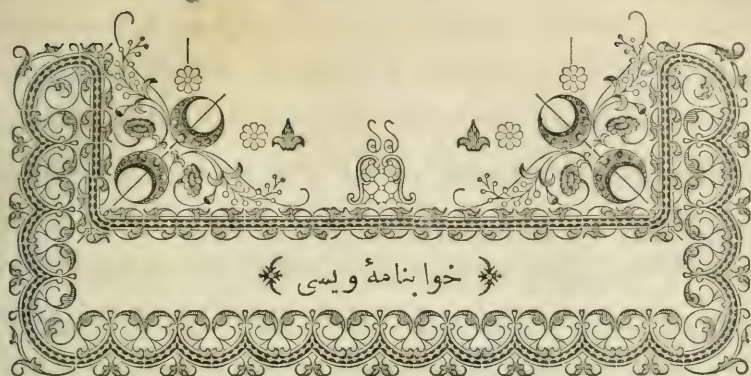 خوابنامهٔ ویسی